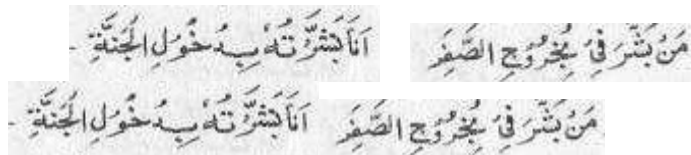 مَنْ بَشَّرَ فِیْ بِخُرُوْجِ الصَّفَرَ اَنَا بَشَّرْتُهٗ بِدُخُوْلِ الْجَنَّةِ -
مَنْ بَشَّرَ فِیْ بِخُرُوْجِ الصَّفَرَ اَنَا بَشَّرْتُهٗ بِدُخُوْلِ الْجَنَّةِ -